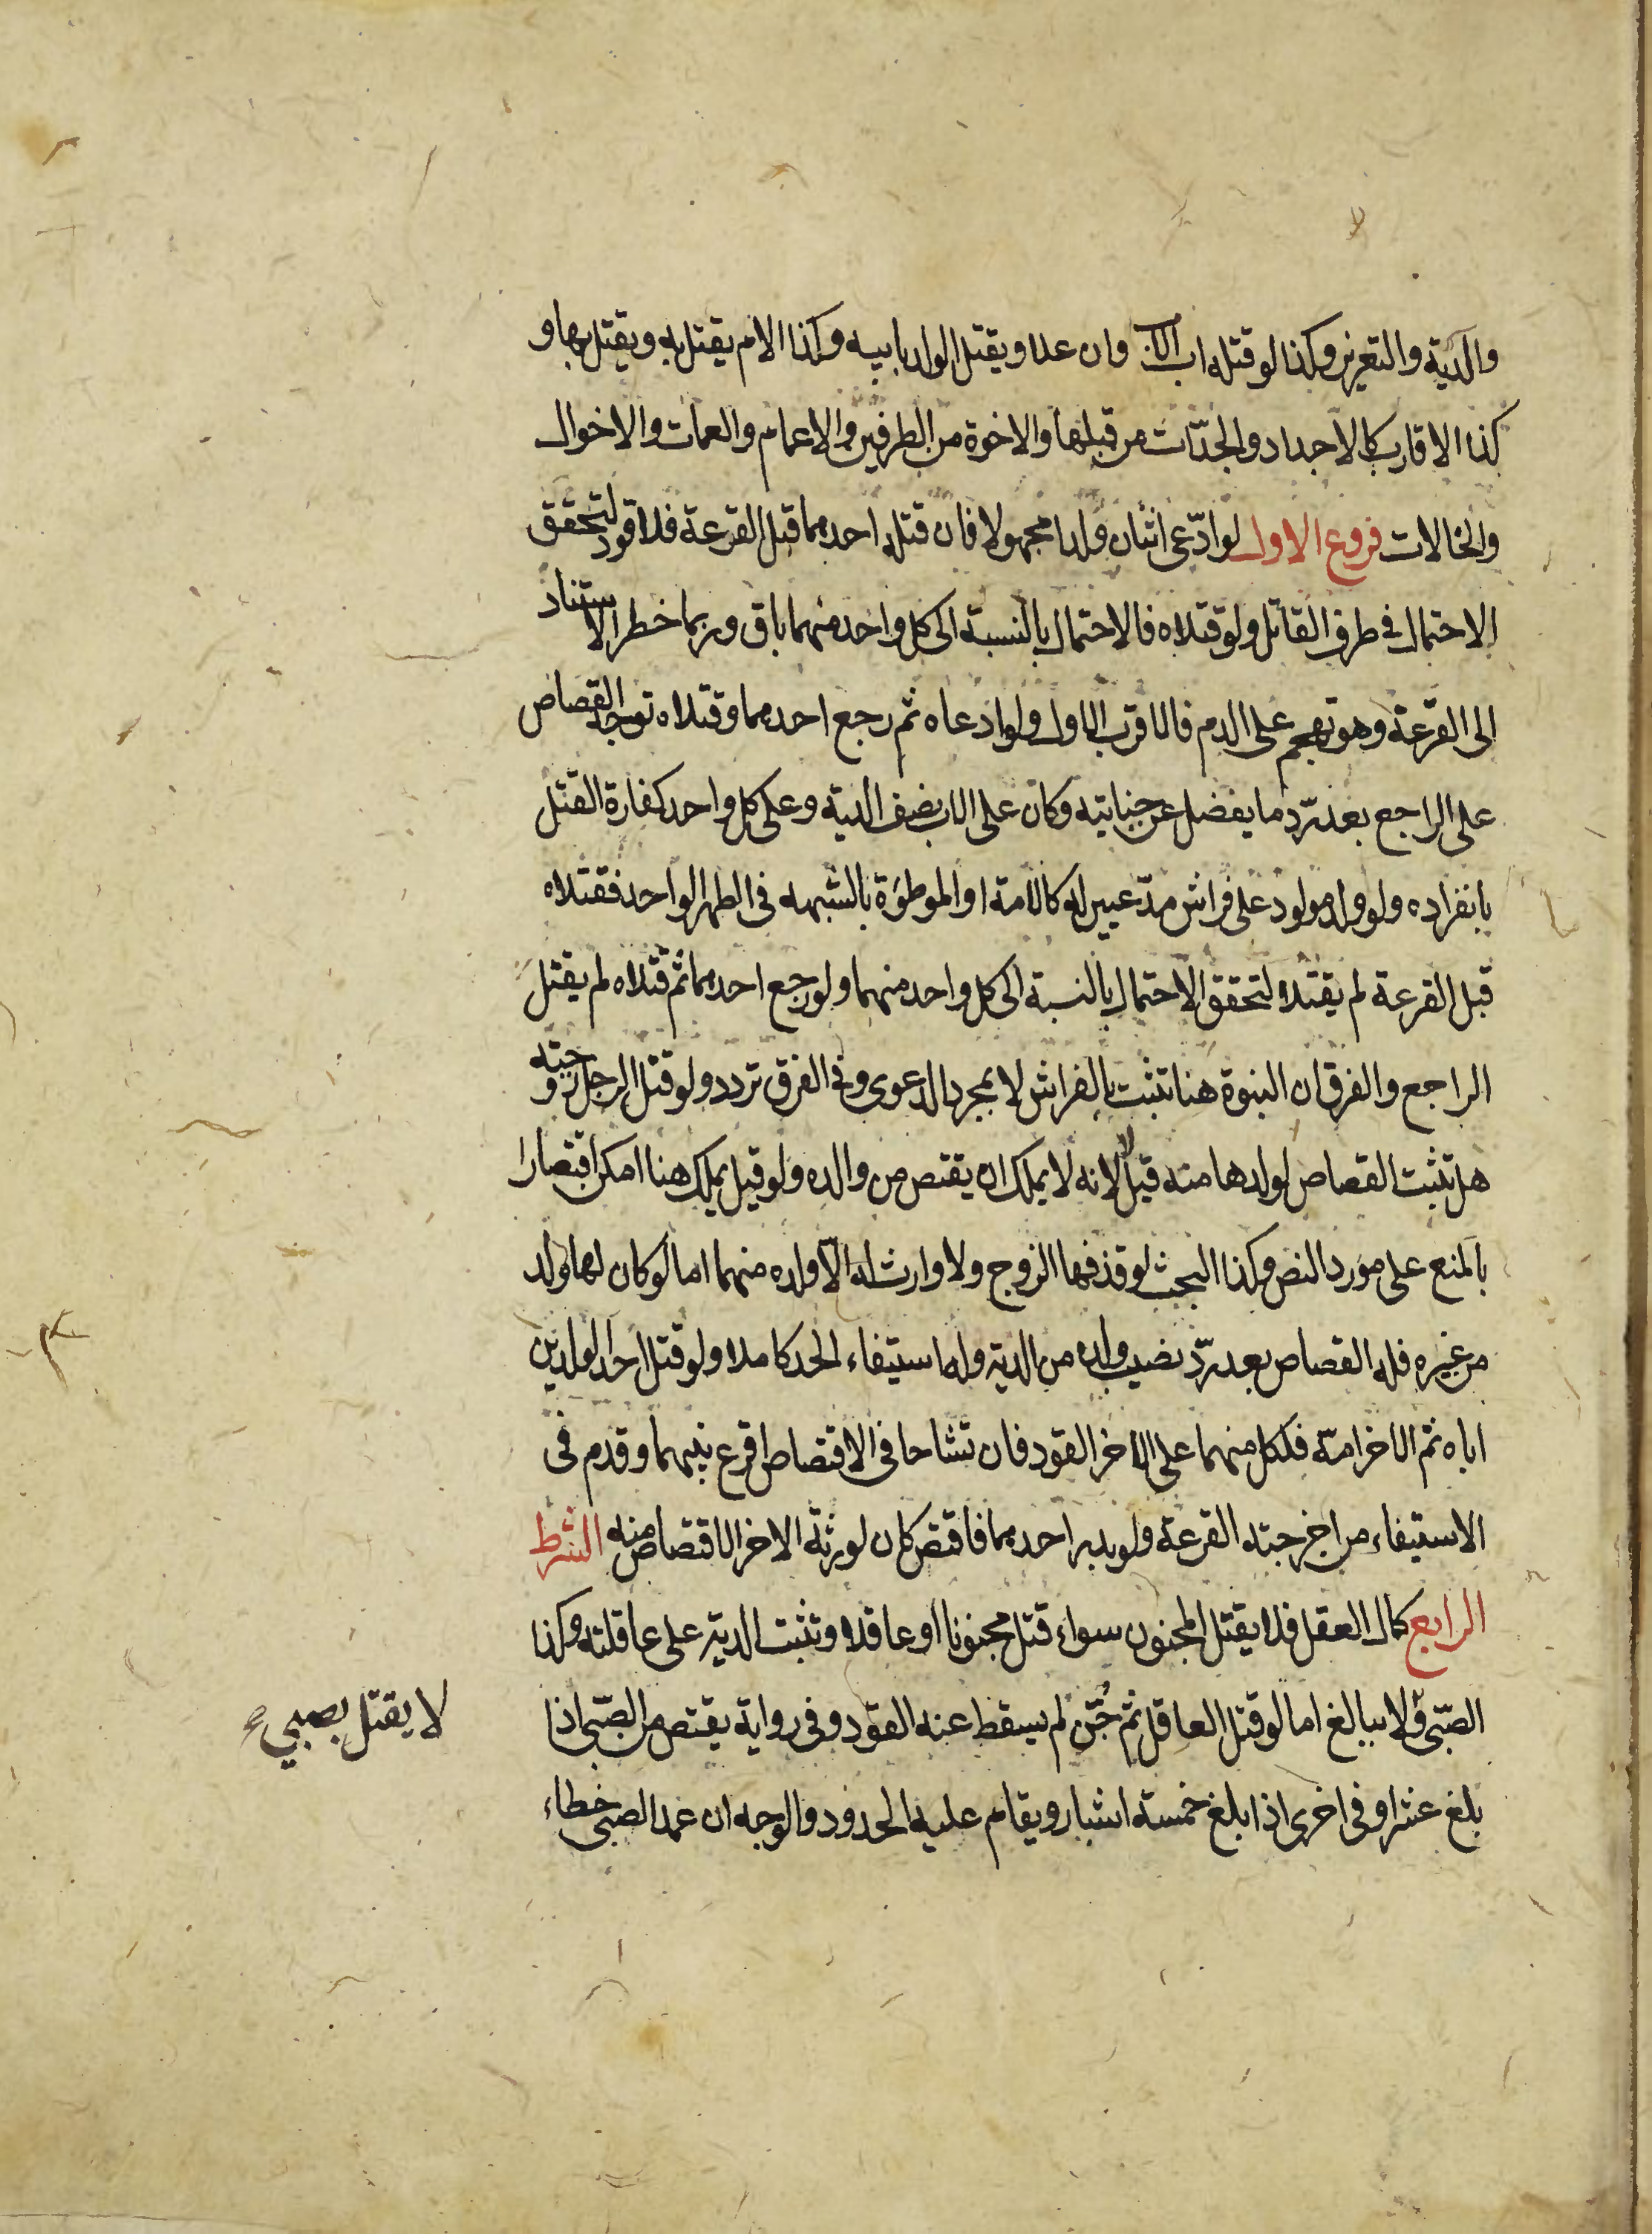 والدية والتعزير وكذا لو قتله اب الاب وان علا ويقتل الولد بابيه وكذا الام يقتل به ويقتل بها و
كذا الاقارب كالاجداد والجدّات من قبلها والاخوة من الطرفين والاعمام والعمات والاخوال
والخالات فروع الاول لو ادّعى اثنان ولدا مجهولا فان قتله احدهما قبل القرعة فلا قود لتحقق
الاحتمال في طرف القاتل ولو قتلاه فالاحتمال بالنسبة الى كل واحد منهما باق وربما خطر الاستناد
الى القرعة وهو تهجم على الدم فالاقرب الاول ولو ادعاه ثم رجع احدهما وقتلاه توجه القصاص
على الراجع بعد ردّ ما يفضل عن جنايته وكان على الاب نصف الدية وعلى كل واحد كفارة القتل
بانفراده ولو ولد مولود على فراش مدّعيين له كالامة او الموطوءة بالشبهه فى الطهر الواحد فقتلاه
قبل القرعة لم يقتلا لتحقق الاحتمال بالنسبة الى كل واحد منهما ولو رجع احدهما ثم قتلاه لم يقتل
الراجع والفرق ان البنوة هنا تثبت بالفراش لا بمجرد الدعوى وفى الفرق تردد ولو قتل الرجل زوجته
هل تثبت القصاص لولدها منه قيل لا لانه لا يملك ان يقتص من والده ولو قيل يملك هنا امكن اقتصارا
بالمنع على مورد النص وكذا البحث لو قذفها الزوج ولا وارث له الّا ولده منهما اما لو كان لها ولد
من غيره فله القصاص بعد ردّ نصيب ولده من الدية وله استيفاء الحد كاملا ولو قتل احد الولدين
اباه ثم الاخر امّه فلكل منهما على الاخر القود فان تشاحا فى الاقتصاص اقرع بينهما وقدم فى
الاستيفاء من اخرجته القرعة ولو بدر احدهما فاقتص كان لورثة الاخر الاقتصاص منه الشرط
الرابع كمال العقل فلا يقتل المجنون سواء قتل مجنونا او عاقلا وتثبت الدية على عاقلته وكذا
الصّبى ولا ببالغ اما لو قتل العاقل ثم جُنّ لم يسقط عنه القود وفى رواية يقتص من الصّبى اذا
لا يقتل بصبي
بلغ عشرا وفى اخرى اذا بلغ خمسة اشبار ويقام عليه الحدود والوجه ان عمد الصبى خطاء